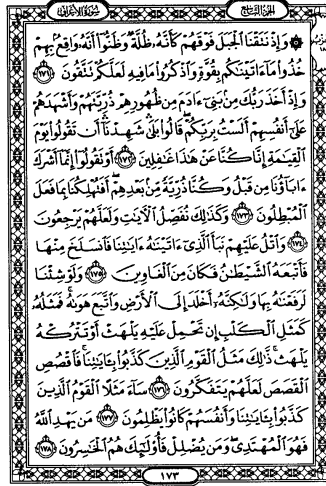 سورة الأعراف الجزء التاسع
۞ وَإِذْ نَتَقْنَا ٱلْجَبَلَ فَوْقَهُمْ كَأَنَّهُۥ ظُلَّةٌ وَظَنُّوٓا۟ أَنَّهُۥ وَاقِعٌۢ بِهِمْ
خُذُوا۟ مَآ ءَاتَيْنَٰكُم بِقُوَّةٍ وَٱذْكُرُوا۟ مَا فِيهِ لَعَلَّكُمْ تَتَّقُونَ ١٧١
وَإِذْ أَخَذَ رَبُّكَ مِنۢ بَنِىٓ ءَادَمَ مِن ظُهُورِهِمْ ذُرِّيَّتَهُمْ وَأَشْهَدَهُمْ
عَلَىٰٓ أَنفُسِهِمْ أَلَسْتُ بِرَبِّكُمْ قَالُوا۟ بَلَىٰ شَهِدْنَآ أَن تَقُولُوا۟ يَوْمَ
ٱلْقِيَٰمَةِ إِنَّا كُنَّا عَنْ هَٰذَا غَٰفِلِينَ ١٧٢ أَوْ تَقُولُوٓا۟ إِنَّمَآ أَشْرَكَ
ءَابَآؤُنَا مِن قَبْلُ وَكُنَّا ذُرِّيَّةً مِّنۢ بَعْدِهِمْ أَفَتُهْلِكُنَا بِمَا فَعَلَ
ٱلْمُبْطِلُونَ ١٧٣ وَكَذَٰلِكَ نُفَصِّلُ ٱلْءَايَٰتِ وَلَعَلَّهُمْ يَرْجِعُونَ
١٧٤ وَٱتْلُ عَلَيْهِمْ نَبَأَ ٱلَّذِىٓ ءَاتَيْنَٰهُ ءَايَٰتِنَا فَٱنسَلَخَ مِنْهَا
فَأَتْبَعَهُ ٱلشَّيْطَٰنُ فَكَانَ مِنَ ٱلْغَاوِينَ ١٧٥ وَلَوْ شِئْنَا
لَرَفَعْنَٰهُ بِهَا وَلَٰكِنَّهُۥٓ أَخْلَدَ إِلَى ٱلْأَرْضِ وَٱتَّبَعَ هَوَىٰهُ فَمَثَلُهُۥ
كَمَثَلِ ٱلْكَلْبِ إِن تَحْمِلْ عَلَيْهِ يَلْهَثْ أَوْ تَتْرُكْهُ
يَلْهَث ذَّٰلِكَ مَثَلُ ٱلْقَوْمِ ٱلَّذِينَ كَذَّبُوا۟ بِـَٔايَٰتِنَا فَٱقْصُصِ
ٱلْقَصَصَ لَعَلَّهُمْ يَتَفَكَّرُونَ ١٧٦ سَآءَ مَثَلًا ٱلْقَوْمُ ٱلَّذِينَ
كَذَّبُوا۟ بِـَٔايَٰتِنَا وَأَنفُسَهُمْ كَانُوا۟ يَظْلِمُونَ ١٧٧ مَن يَهْدِ ٱللَّهُ
فَهُوَ ٱلْمُهْتَدِى وَمَن يُضْلِلْ فَأُو۟لَٰٓئِكَ هُمُ ٱلْخَٰسِرُونَ ١٧٨
١٧٣